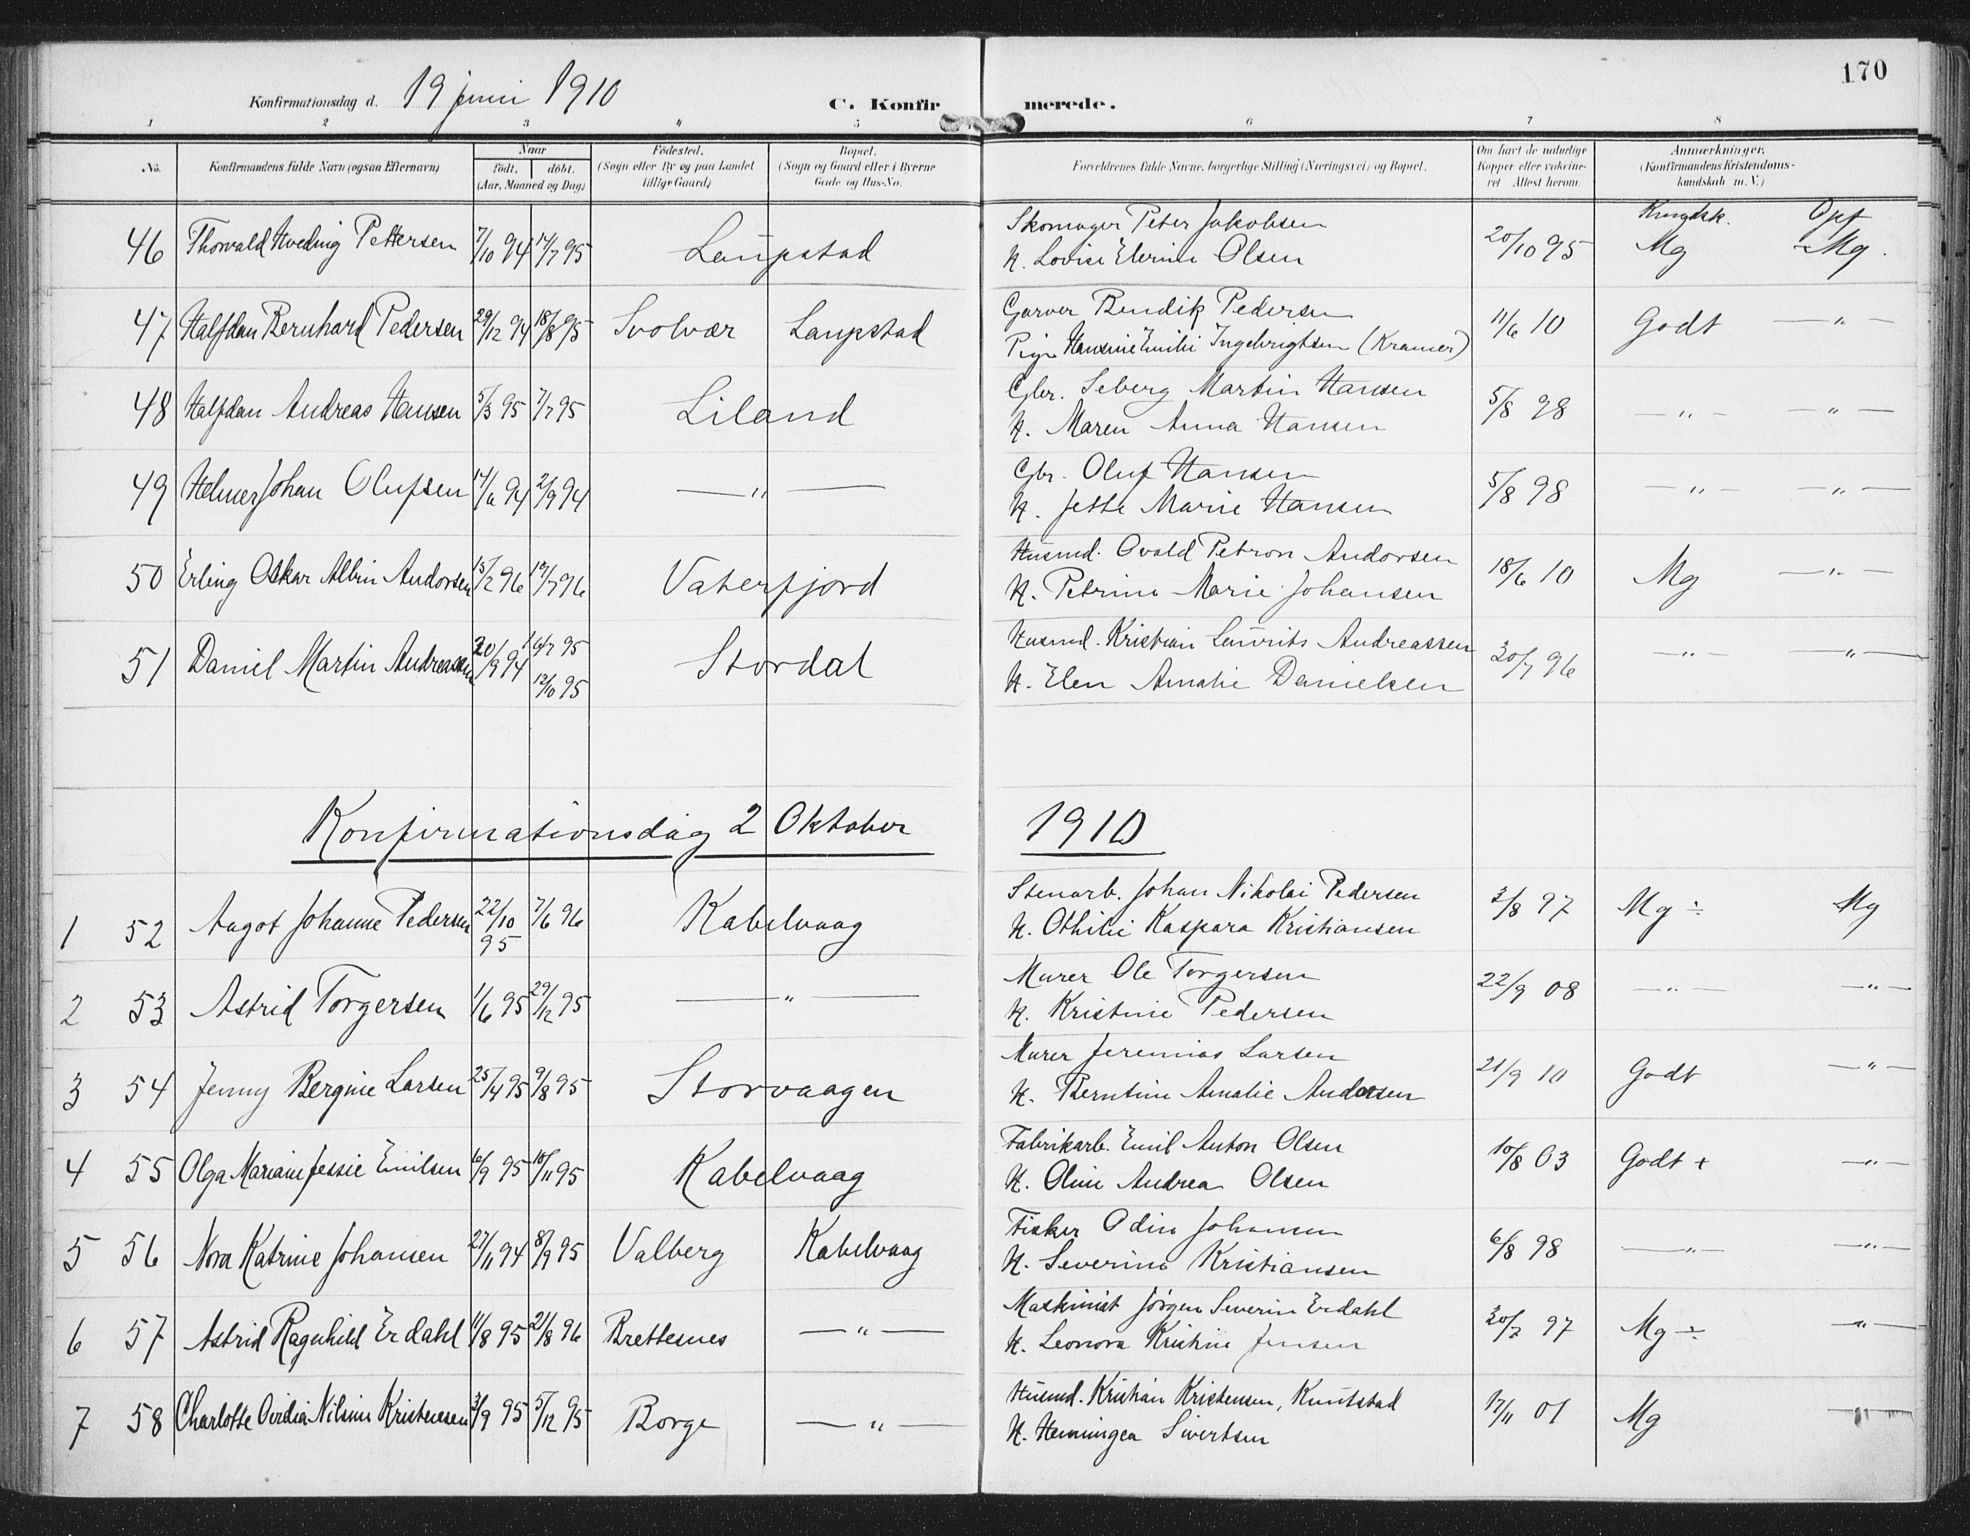 170
Konfirmationsdag d. 19 juni 1910 C. Konfirmerede.
1 2 3 4 5 6 7 8
No. Konfirmandens fulde Navn (ogsaa Efternavn) Naar født. døbt. (Aar, Maaned og Dag) Fødested. (Sogn eller By og paa Landet tillige Gaard) Bopæl. (Sogn og Gaard eller i Byerne Gade og Hus-No. Forældrenes fulde Navne, borgerlige Stilling (Næringsvei) og Bopæl. Om havt de naturlige Kopper eller vakcineret Attest herom. Anmærkninger. (Konfirmandens Kristendomskundskab m. V.)
Kundsk. Opf
46 Thorvald Hveding Pettersen 7/10 94 14/7 95 Laupstad Skomager Peter Jakobsen 20/10 95 Mg Mg.
H. Lovise Elerine Olsen
47 Halfdan Bernhard Pedersen 29/12 94 18/8 95 Svolvær Laupstad Garver Bendik Pedersen 11/6 10 Godt — " —
Pige Hansine Emilie Ingebrigtsen (Kramer)
48 Halfdan Andreas Hansen 5/3 95 7/7 95 Liland Gbr. Seberg Martin Hansen 5/8 98 — " — — " —
H. Maren Anna Hansen
49 Helmer Johan Olufsen 14/6 94 2/9 94 — " — Gbr. Oluf Hansen 5/8 98 — " — — " —
H. Jette Marie Hansen
50 Erling Oskar Albin Andorsen 15/2 96 19/7 96 Vaterfjord Husmd. Ovald Petron Andorsen 18/6 10 Mg — " —
H. Petrine Marie Johansen
51 Daniel Martin Andreassen 20/9 94 16/7 95 Stordal Husmd. Kristian Laurits Andreassen 30/7 96 — " — — " —
13/10 95 H. Elen Amalie Danielsen
Konfirmationsdag 2 Oktober 1910
1 52 Aagot Johanne Pedersen 22/10 95 7/6 96 Kabelvaag Stenarb. Johan Nikolai Pedersen 3/8 97 Mg ÷ Mg
H. Othilie Kaspara Kristiansen
2 53 Astrid Torgersen 1/6 95 29/12 95 — " — Murer Ole Torgersen 22/9 08 — " — — " —
H. Kristine Pedersen
3 54 Jenny Bergine Larsen 25/4 95 9/8 95 Storvaagen Murer Jeremias Larsen 21/9 10 Godt — " —
H. Berntine Amalie Andersen
4 55 Olga Mariane Jessie Emilsen 16/9 95 10/11 95 Kabelvaag Fabrikarb. Emil Anton Olsen 10/8 03 Godt + — " —
H. Oline Andrea Olsen
5 56 Nora Katrine Johansen 27/11 94 8/9 95 Valberg Kabelvaag Fisker Odin Johansen 6/8 98 — " — — " —
H. Severine Kristiansen
6 57 Astrid Ragnhild Erdahl 11/8 95 21/8 96 Brettesnes — " — Maskinist Jørgen Severin Erdahl 30/7 97 Mg ÷ — " —
H. Leonora Kristine Jensen
7 58 Charlotte Ovidia Nilsine Kristensen 3/9 95 5/12 95 Borge — " — Husmd. Kristian Kristensen, Kunstad 17/11 01 Mg — " —
H. Henningea Sivertsen